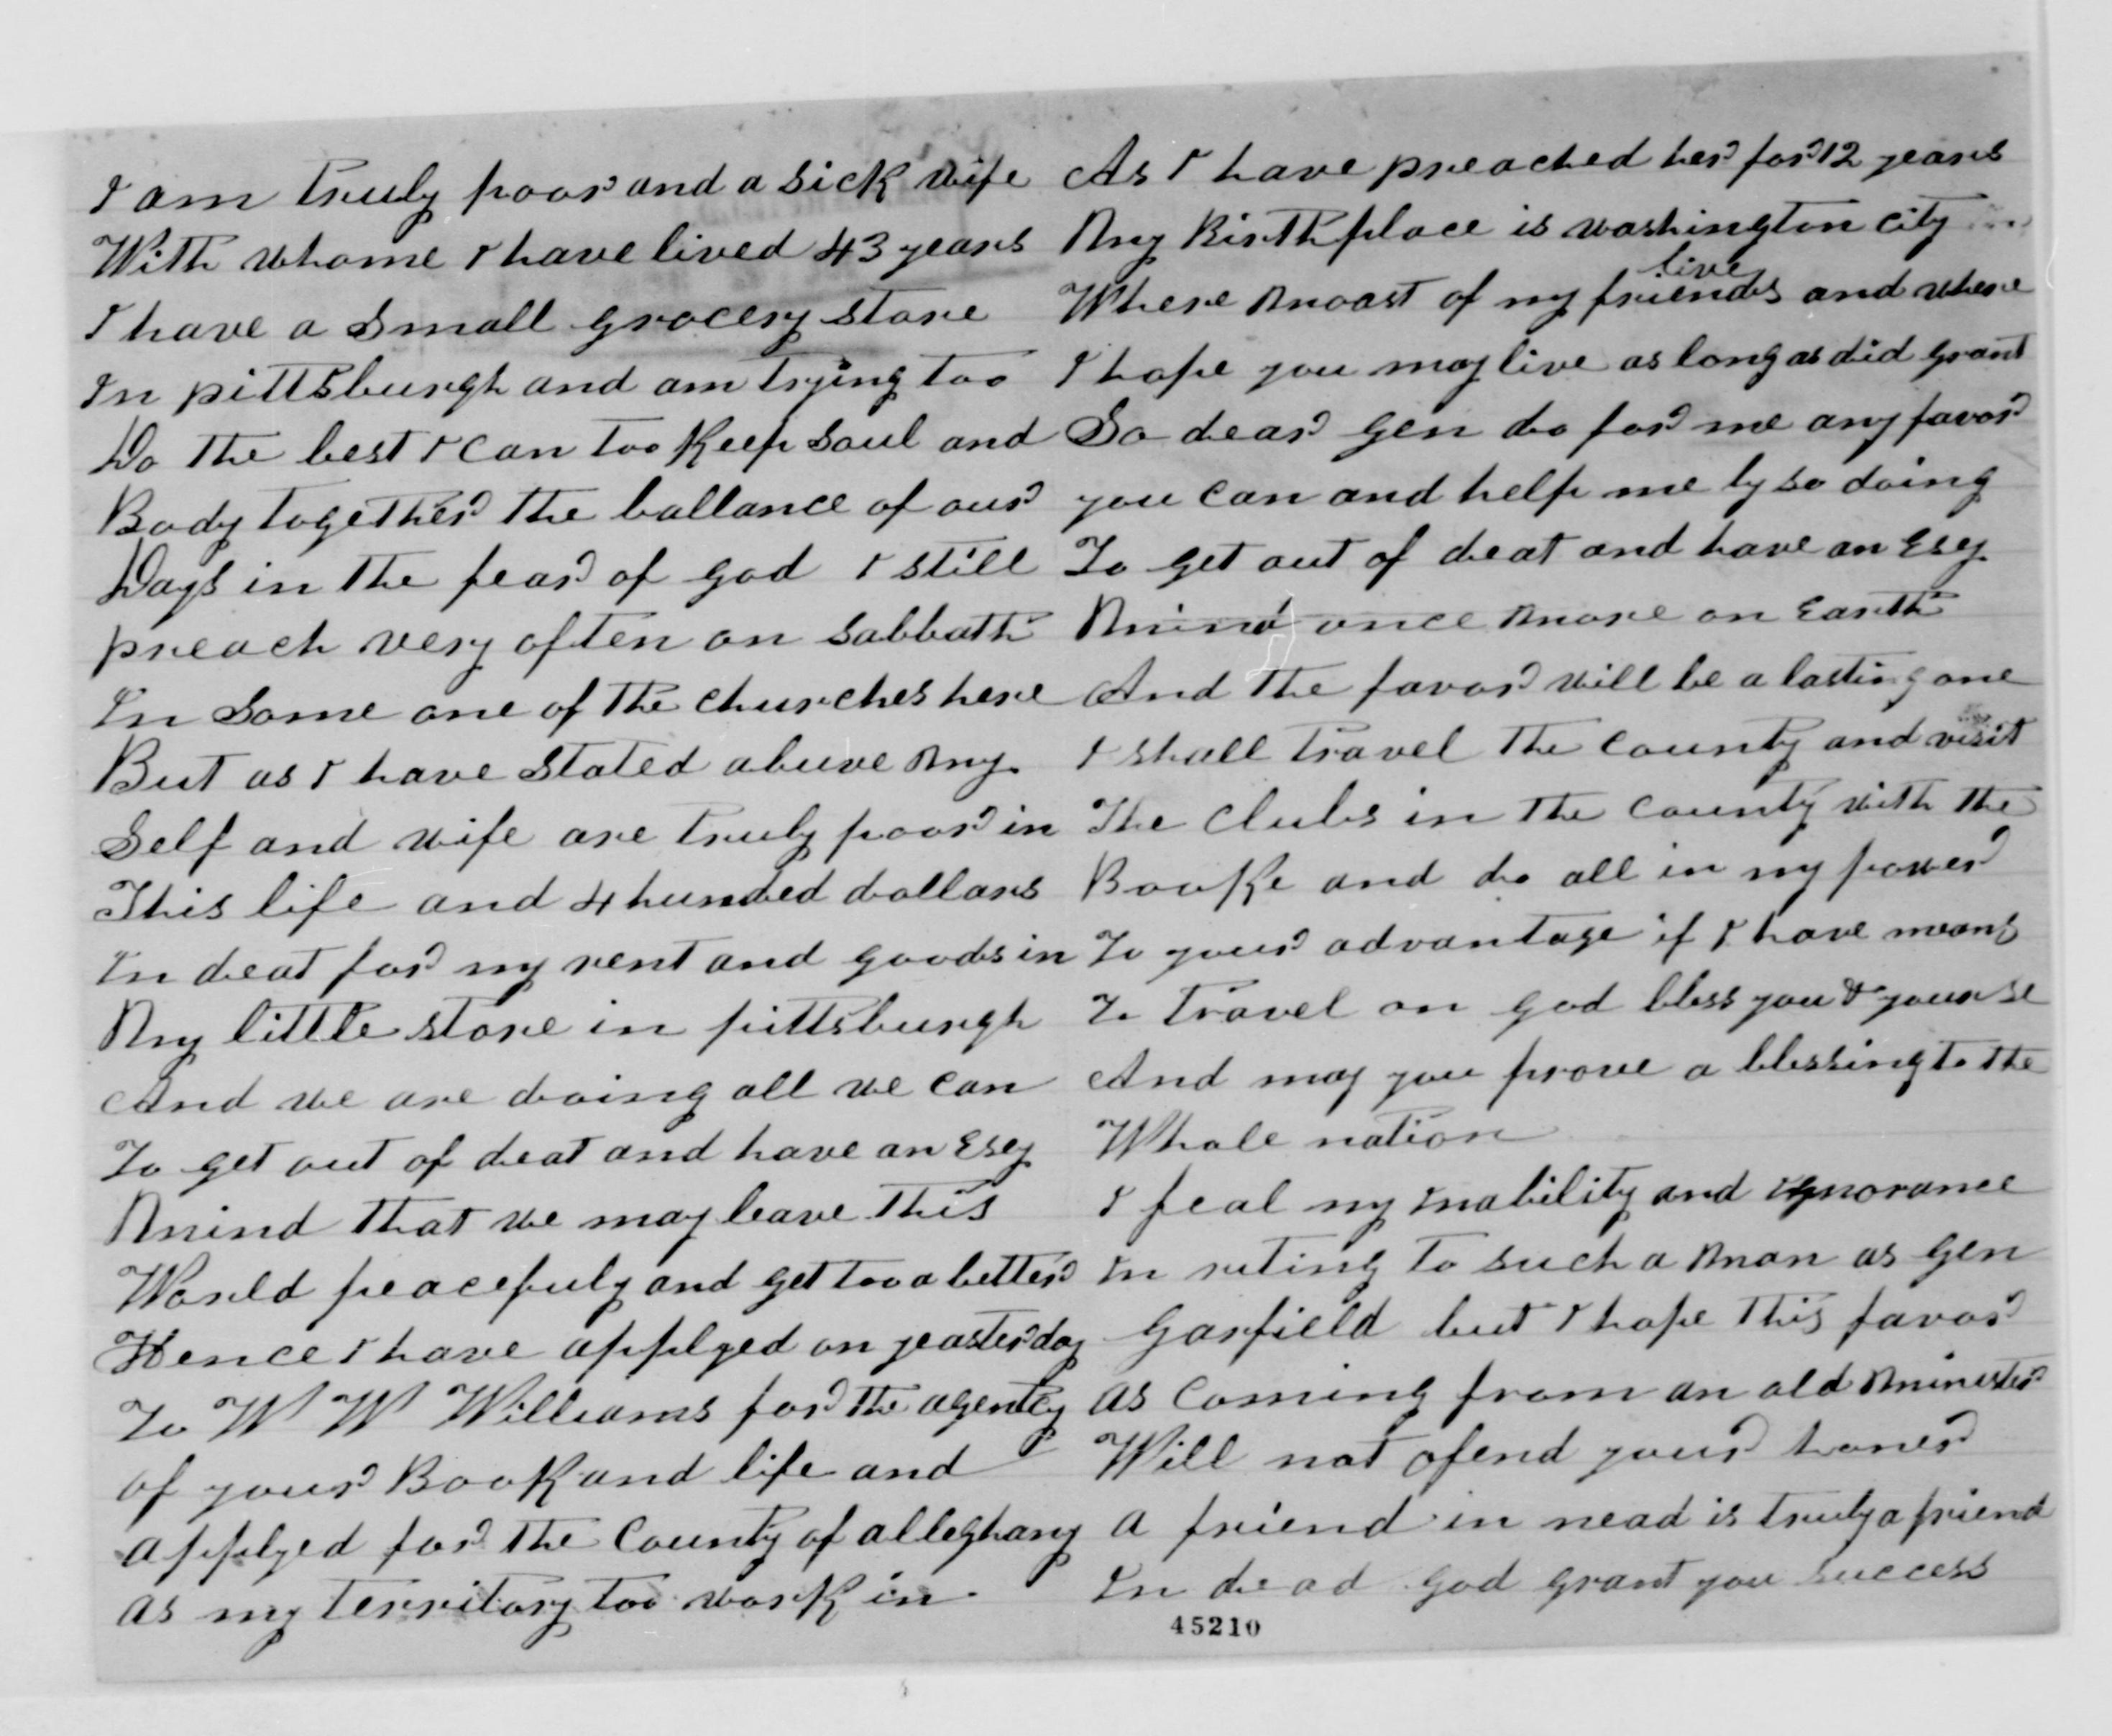 I am truly poor and a sick wife
With whome I have lived 43 years
I have a small grocery store
In pittsburgh and am trying too
Do the best I can too Keep soul and
Body together the ballance of our
Days in the fear of god I still
preach very often on Sabbath
In Some one of the churches here
But as I have Stated abuve My
Self and wife are truly poor in
This life and 4 hunded dollars
In deat for my rent and goods in
My little store in pittsburgh
And we are doing all we can
To get out of deat and have an Esey
Mind that we may leave this
World peacefuly and get too a better
Hence I have applyed on yeasterday
To W W Williams for the agentcy
of your Book and life and
applyed for the County of alleghany
as my territory too work in
As I have preached her for 12 years
My Birthplace is washington city
live
Where Moast of my friends and where
I hope you may live as long as did grant
So dear Gen do for me any favor
you can and help me by so doing
To get out of deat and have an Esey
Mind once More on Earth
And the favor will be a lasting one
I shall travel the county and visit
The Clubs in the county with the
Booke and do all in my power
To your advantage if I have means
To travel on god bless you & yourse
And may you prove a blessing to the
Whole nation
I feal my Inability and Ignorance
In riting to such a Man as Gen
Garfield but I hope this favor
as Coming from an old Minister
Will not ofend your honer
a friend in nead is truly a friend
In dead god grant you success
45210